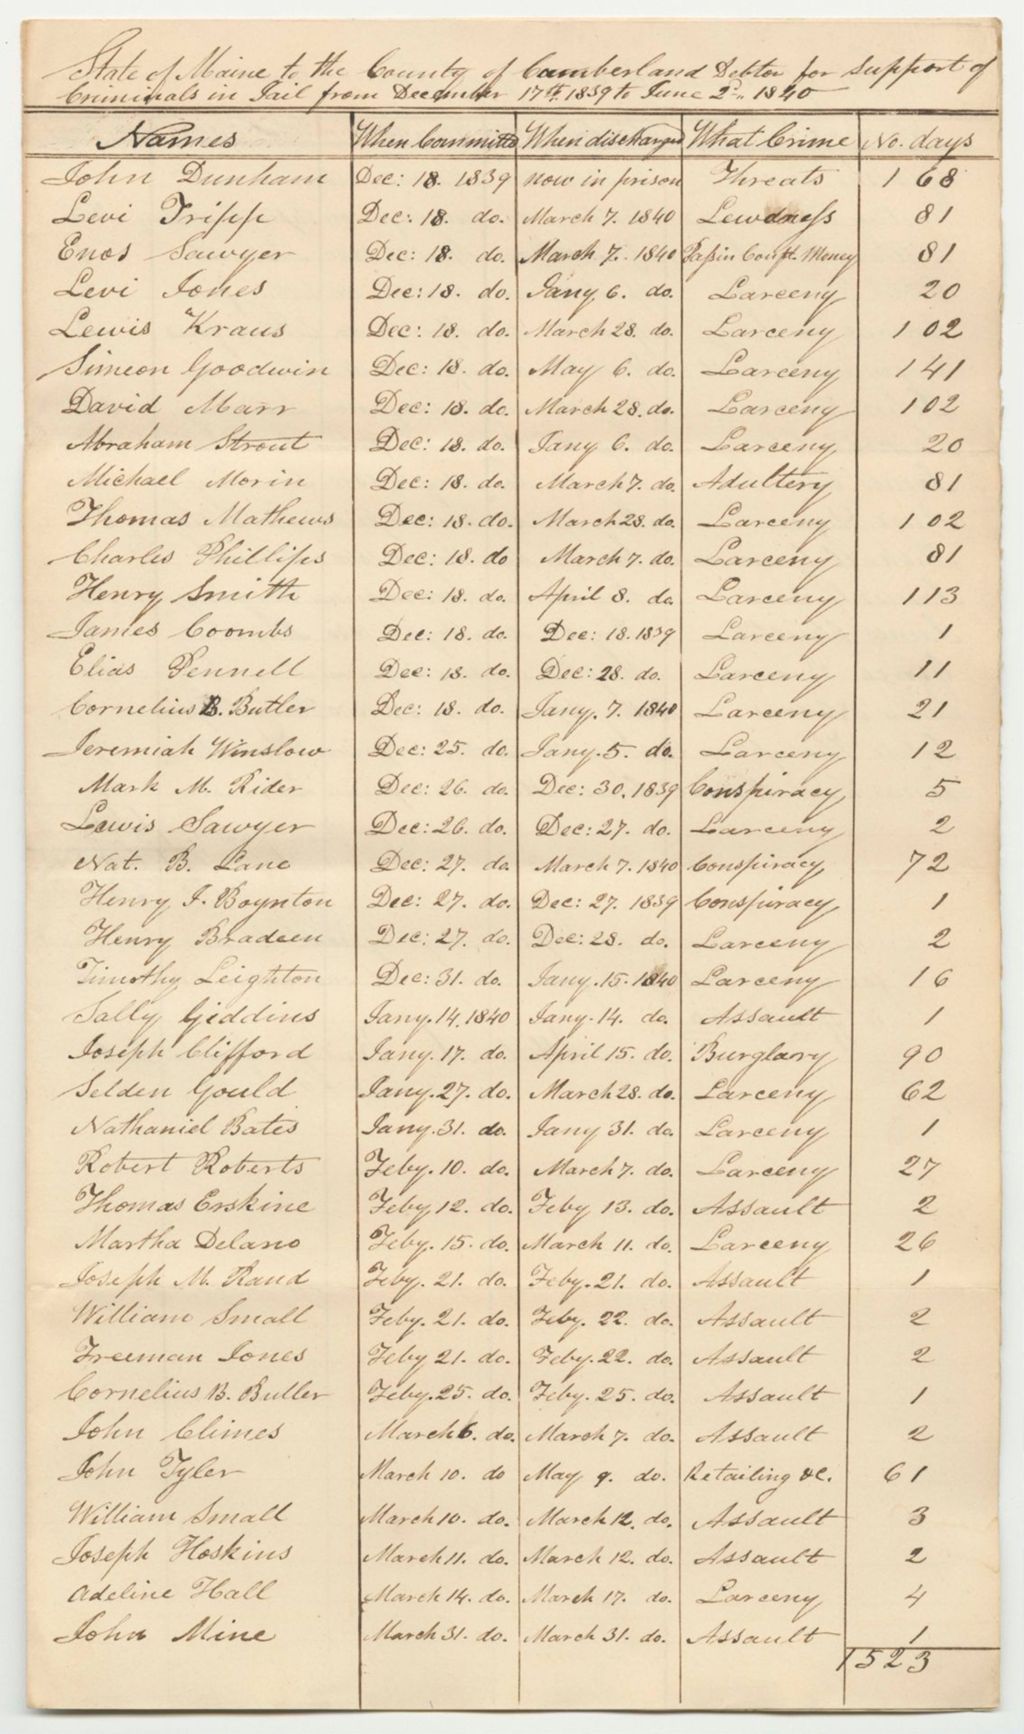 State of Maine to the County of Cumberland Debtor for support of
Criminals in Jail from December 17th. 1839 to June 2d.. 1840
Names When Committed When discharged What Crime No. days
John Dunham Dec: 18. 1839 now in prison Threats 168
Levi Tripp Dec: 18. do. March 7. 1840 Lewdness 81
Enos Sawyer Dec: 18. do. March 7. 1840 Passin Counft. Money 81
Levi Jones Dec: 18. do. Jany 6. do. Larceny 20
Lewis Kraus Dec: 18. do. March 28. do. Larceny 102
Simeon Goodwin Dec: 18. do. May 6. do. Larceny 141
David Marr Dec: 18. do. March 28. do. Larceny 102
Abraham Strout Dec: 18. do. Jany 6. do. Larceny 20
Michael Morin Dec: 18. do. March 7. do. Adultery 81
Thomas Mathews Dec: 18. do. March 28. do. Larceny 102
Charles Phillips Dec: 18. do March 7. do. Larceny 81
Henry Smith Dec: 18. do. April 8. do Larceny 113
James Coombs Dec: 18. do. Dec: 18. 1839 Larceny 1
Elias Pennell Dec: 18. do. Dec: 28. do. Larceny 11
Cornelius B. Butler Dec: 18. do. Jany. 7. 1840 Larceny 21
Jeremiah Winslow Dec: 25. do. Jany. 5. do. Larceny 12
Mark M. Rider Dec: 26. do. Dec: 30. 1839 Conspiracy 5
Lewis Sawyer Dec: 26. do. Dec: 27. do. Larceny 2
Nat. B. Lane Dec: 27. do March 7. 1840 Conspiracy 72
Henry J. Boynton Dec: 27. do. Dec: 27. 1839 Conspiracy 1
Henry Bradeen Dec: 27. do. Dec: 28. do. Larceny 2
Timothy Leighton Dec: 31. do. Jany. 15. 1840 Larceny 16
Sally Giddins Jany. 14. 1840 Jany. 14. do. Assault 1
Joseph Clifford Jany. 17. do. April 15. do. Burglary 90
Selden Gould Jany. 27. do. March 28. do. Larceny 62
Nathaniel Bates Jany. 31. do. Jany 31. do. Larceny 1
Robert Roberts Feby. 10. do. March 7. do. Larceny 27
Thomas Erskine Feby 12. do. Feby 13. do. Assault 2
Martha Delano Feby. 15. do. March 11. do. Larceny 26
Joseph M. Rand Feby. 21. do. Feby. 21. do. Assault 1
William Small Feby. 21. do. Feby. 22. do. Assault 2
Freeman Jones Feby 21. do. Feby. 22. do. Assault 2
Cornelius B. Butler Feby. 25. do. Feby. 25. do. Assault 1
John Climes March 6. do. March 7. do. Assault 2
John Tyler March 10. do May 9. do. Retailing &c. 61
William Small March 10. do. March 12. do. Assault 3
Joseph Hoskins March 11. do. March 12. do. Assault 2
Adeline Hall March 14. do. March 17. do. Larceny 4
John Mine March 31. do. March 31. do. Assault 1
1523